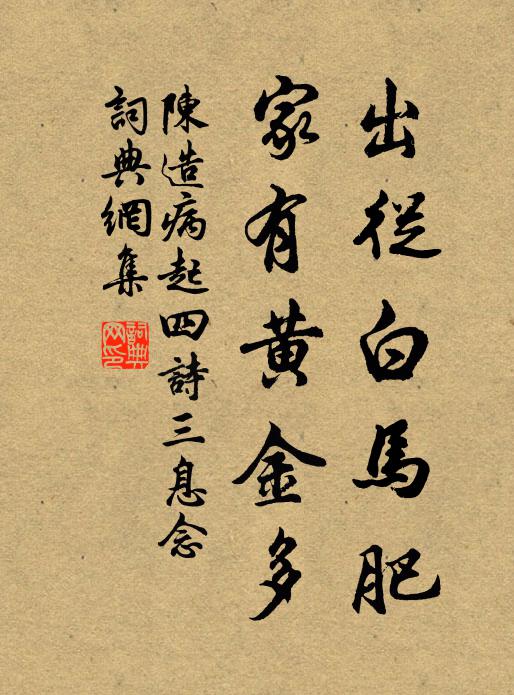 出從白馬肥
家有黃金多
陳造病起四詩三息念
詞典網集
詞典
网印